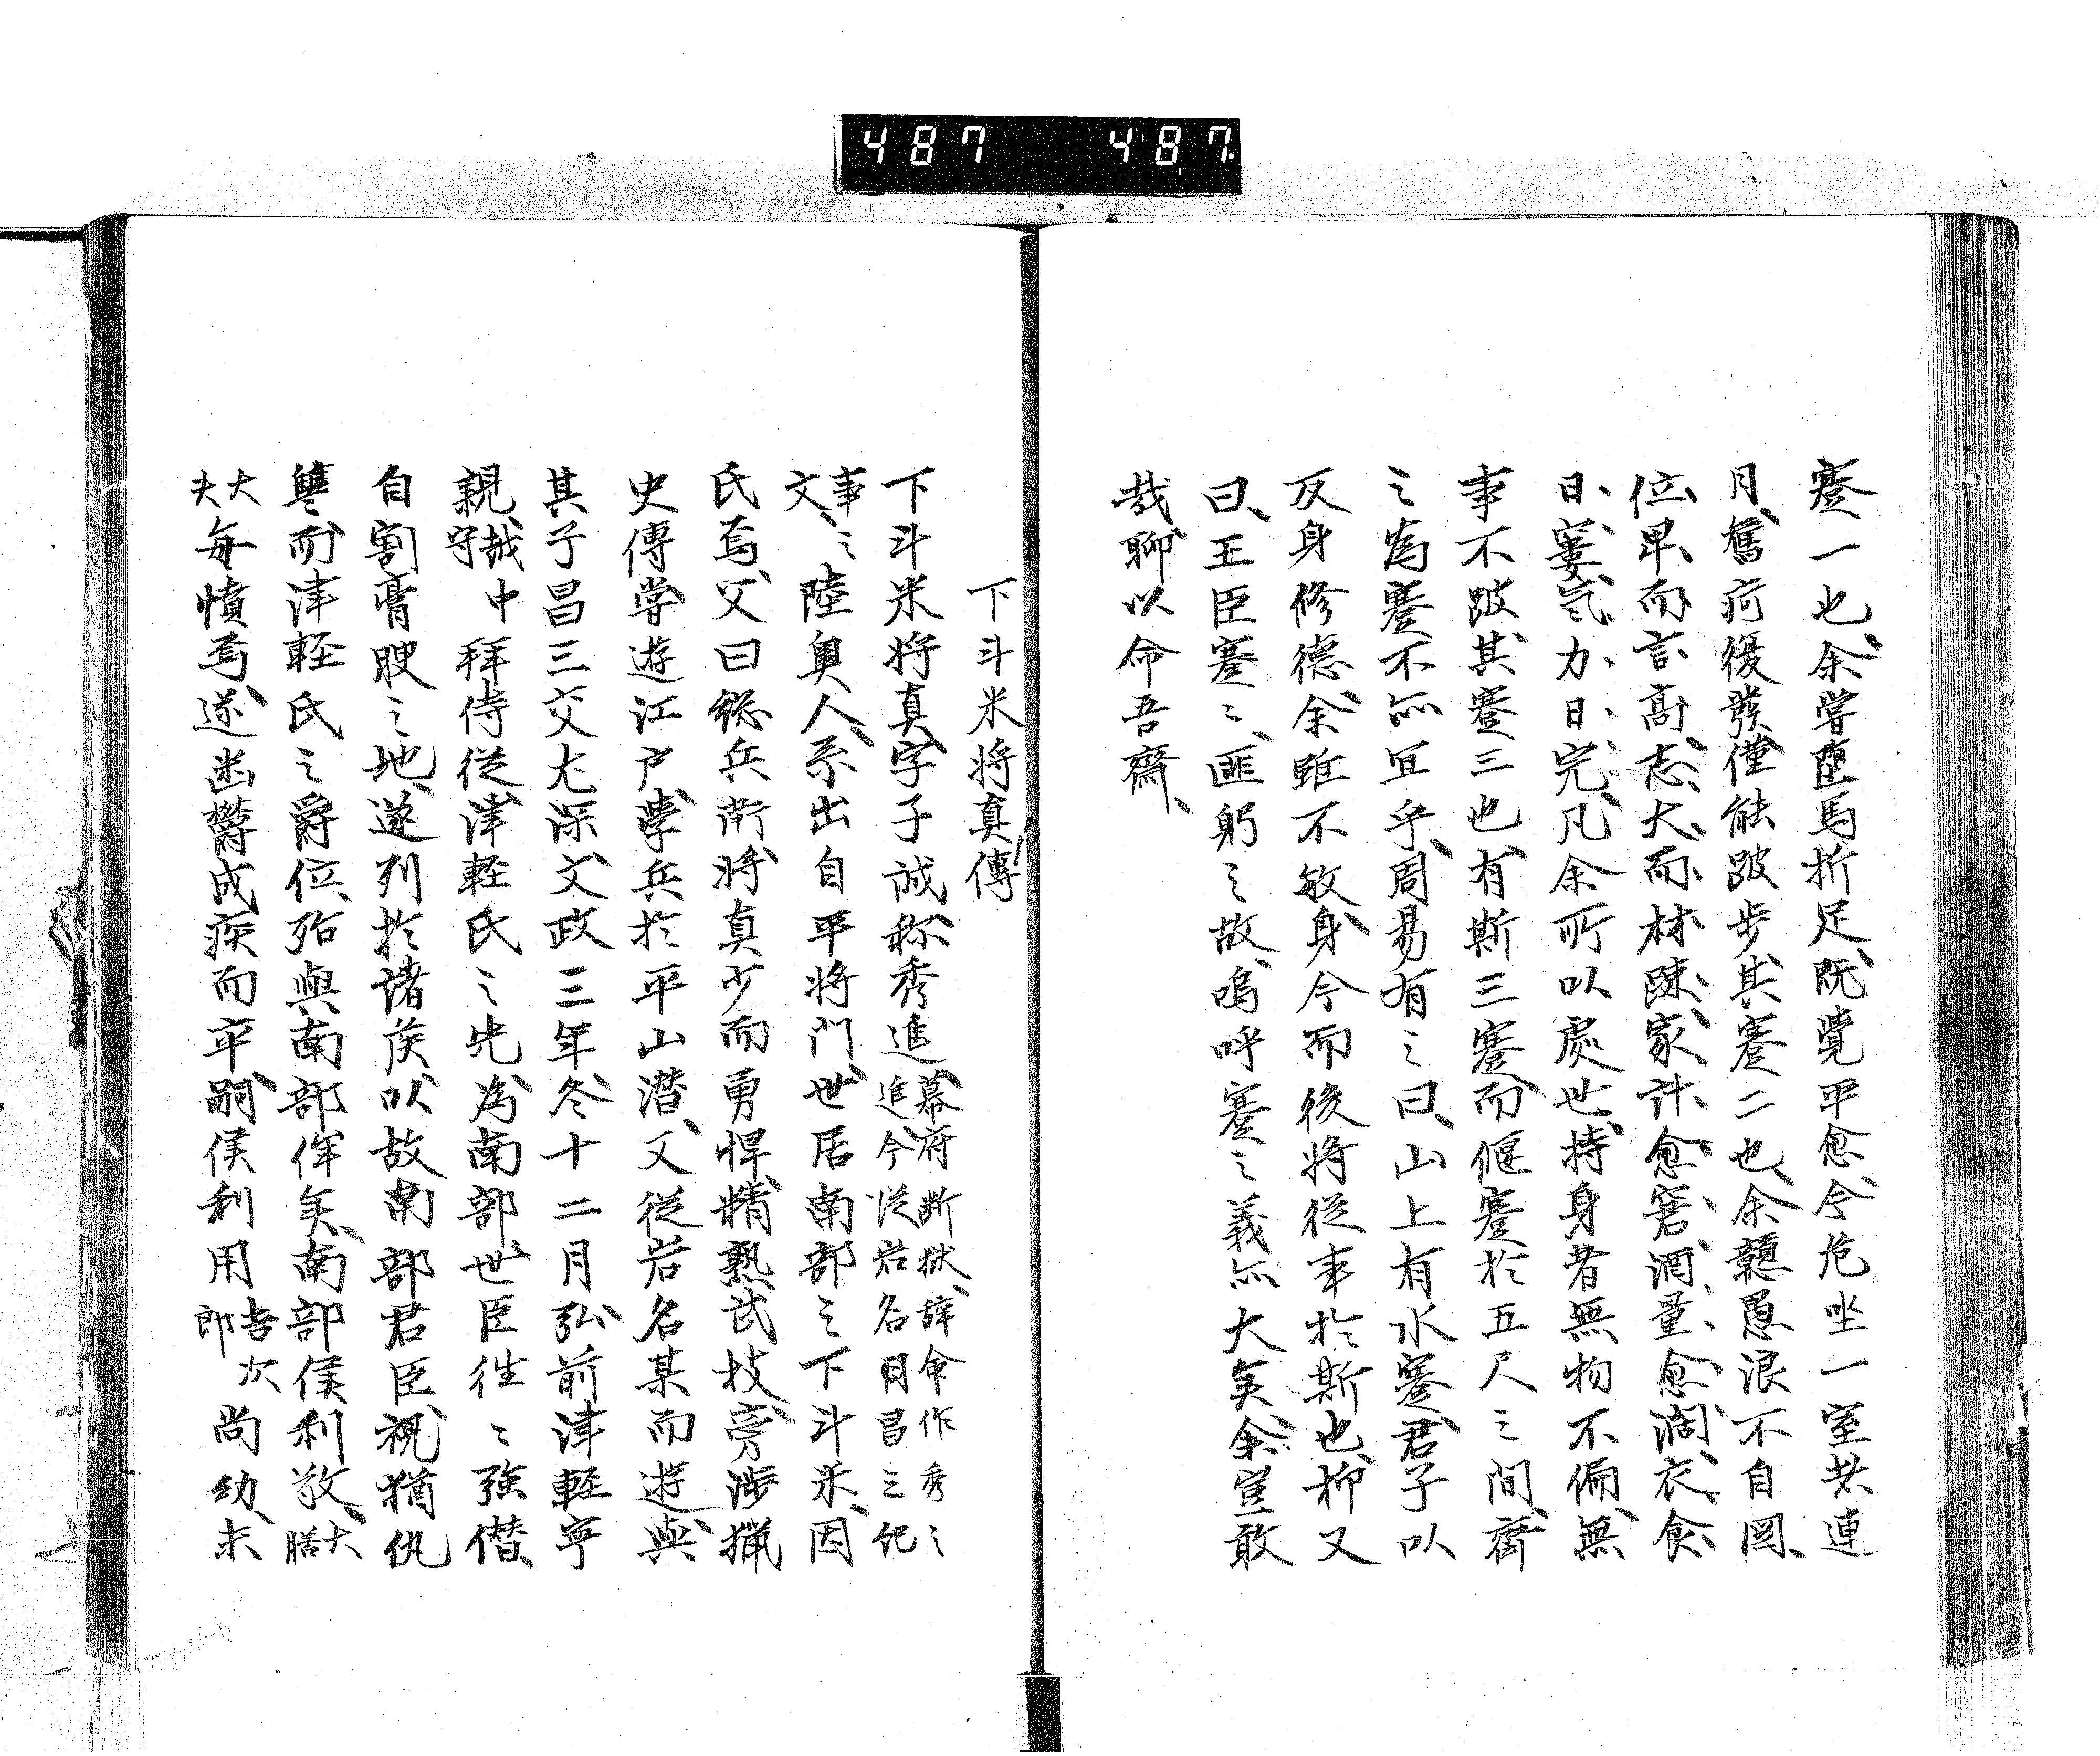 487 487
蹇一也、余嘗墮馬折足、既覺平愈、今危坐一室、共連
月、舊疴復發、僅能跛步、其蹇二也、余戇愚浪不自図、
位、卑、而、言、高、志、大、而、材、踈、家、計、愈、窘、酒、量、愈、濶、衣、食、
日、窶、氣、力、日、完、凡余所以處世、持身者無物不偏、無
事不跛、其蹇三也、有斯三蹇、而偃蹇於五尺之間、齋
之為蹇不亦宜乎、周易有之曰、山上有水蹇、君子以
反身修德、余雖不敏、身今而後将従事於斯也、抑又
曰、王臣蹇〻、匪躬之故、嗚呼蹇之義亦大矣、余豈敢
哉、聊以命吾齋、
下斗米将真傳
下斗米将真、字子誠、称秀進、幕府断獄、辞命作秀之
進、今従若名目昌三紀
事、之
文、陸奥人、系出自平将門、世居南部之下斗米、因
氏焉、父曰総兵衛、将真少而勇悍、精熟武技、旁渉猟
史傳、嘗遊江戸、学兵於平山潜、又従岩名某而遊、與
其子昌三交尤深、文政三年冬、十二月弘前津軽寧
親、越
守中拜侍従、津軽氏之先、為南部世臣、往〻強僣、
自割膏腴之地、遂列於諸侯、以故南部君臣、視猶仇
讐、而津軽氏之爵位、殆與南部侔矣、南部侯利敬、大
膳
大
夫毎憤焉、遂凼鬱成疾而卒、嗣侯利用吉次
郎尚幼、未